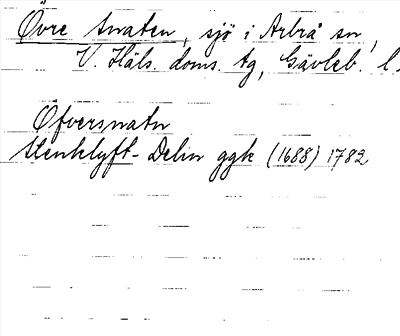 Övre Snaten, sjö i Arbrå sn,
V. Häls. doms. tg, Gävleb. l.
Öfversnatn
Stenklyft- Delin ggk (1688) 1782